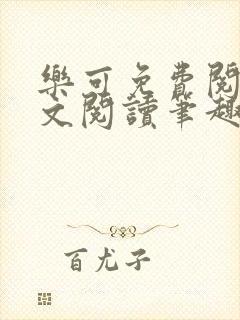 樂可免費閱
文閱讀筆趣
百尤子